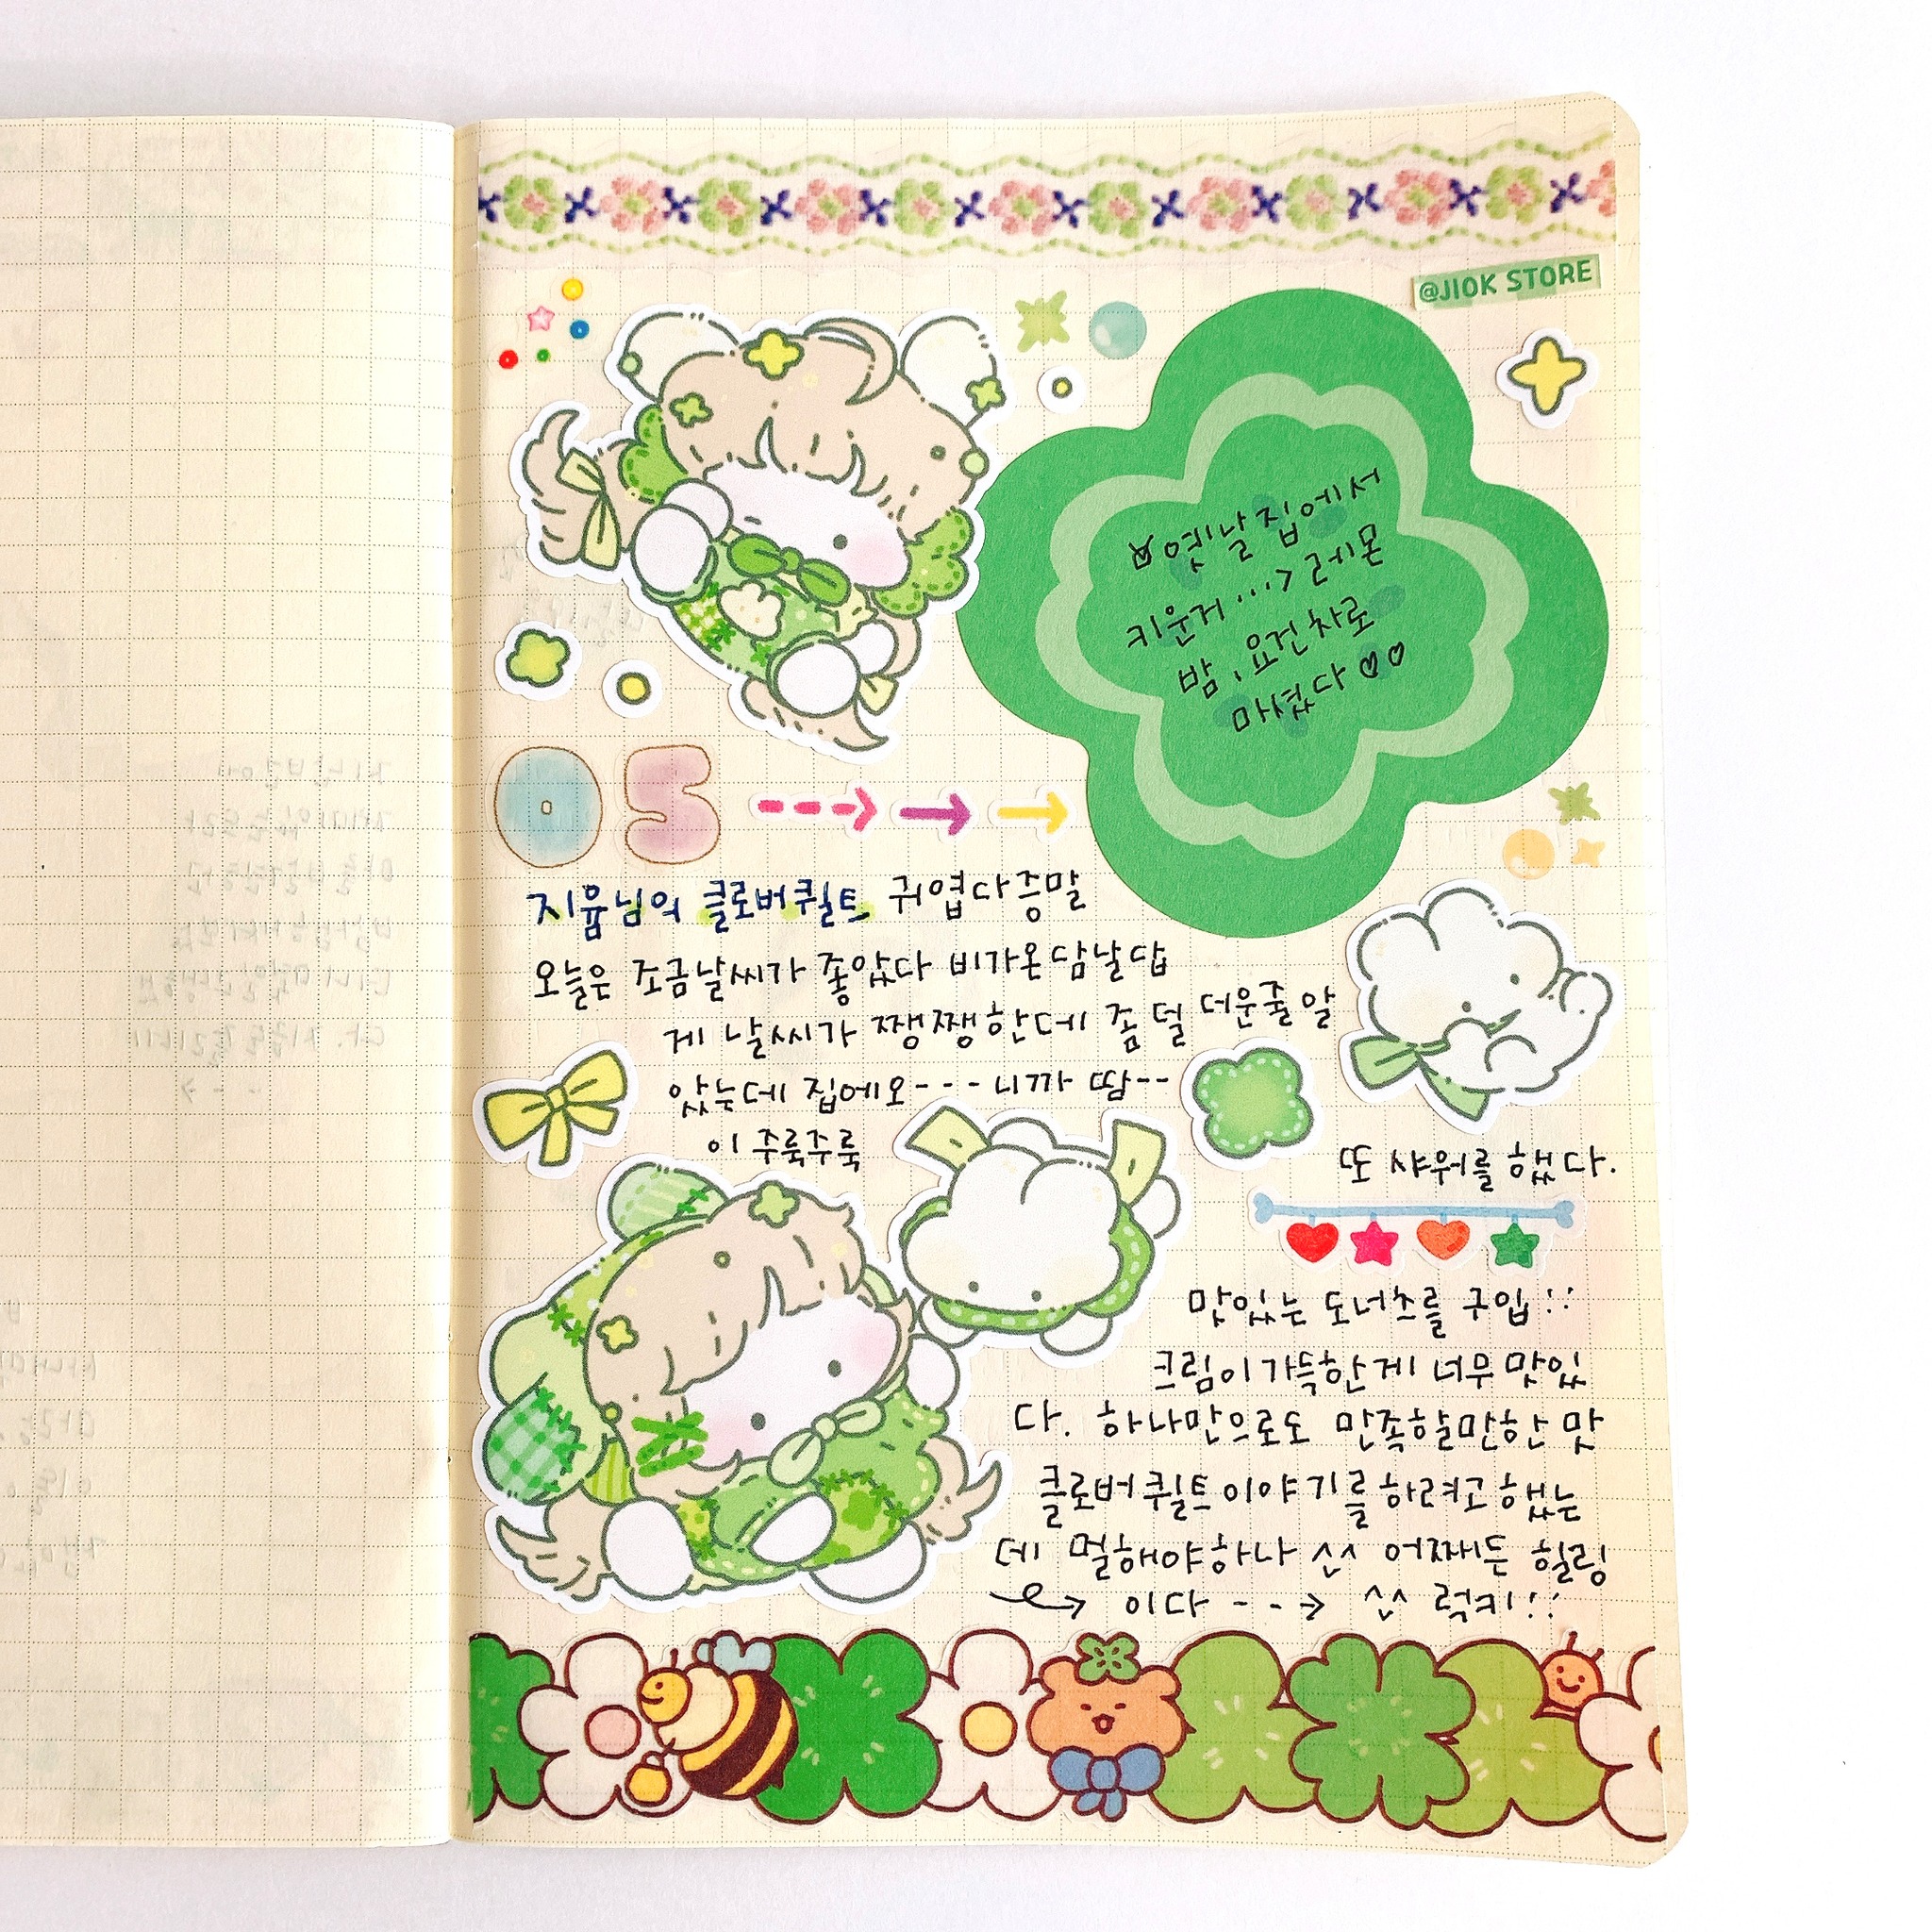 @JIOK STORE
옛날집에서
키운거 ...> 레몬
밤, 요건차로
마셨다 ♡♡
05
지윰님의 클로버퀼트 귀엽다증말
오늘은 조금날씨가 좋았다 비가온담날답
게 날씨가 쨍쨍한데 좀 덜 더운줄 알
았는데 집에오---니까 땀--
이 주룩주룩
또 샤워를 했다.
맛있는 도너츠를 구입 ::
크림이가득한게 너무 맛있
다. 하나만으로도 만족할만한 맛
클로버퀼트 이야기를 하려고했는
데 멀해야하나 ^^ 어쨰든 힐링
이다 --> ^^ 럭키!: